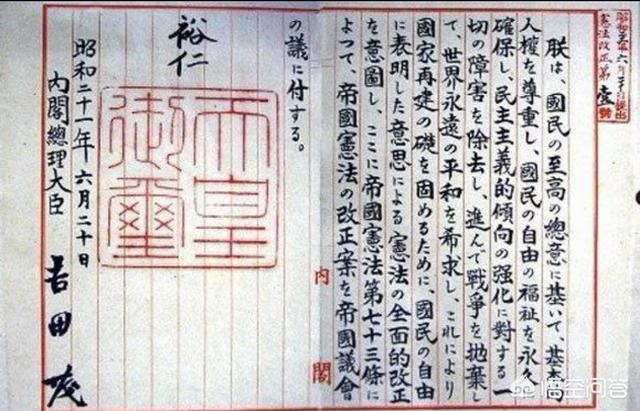 憲法改正第壹號
朕は、國民の至高の總意に基いて、基本的
人權を尊重し、國民の自由の福祉を永久に
確保し、民主主義的傾向の强化に對する一
切の障害を除去し、進んで戰爭を抛棄し
て、世界永遠の平和を希求し、これにより
國家再建の礎を固めるために、國民の自由
に表明した意思による憲法の全面的改正
を意圖し、ここに帝國憲法第七十三條に
よつて、帝國憲法の改正案を帝國議會
內閣
の議に付する。
裕仁
天皇
御璽
昭和二十一年六月二十日
內閣總理大臣 吉田茂
悟空问答